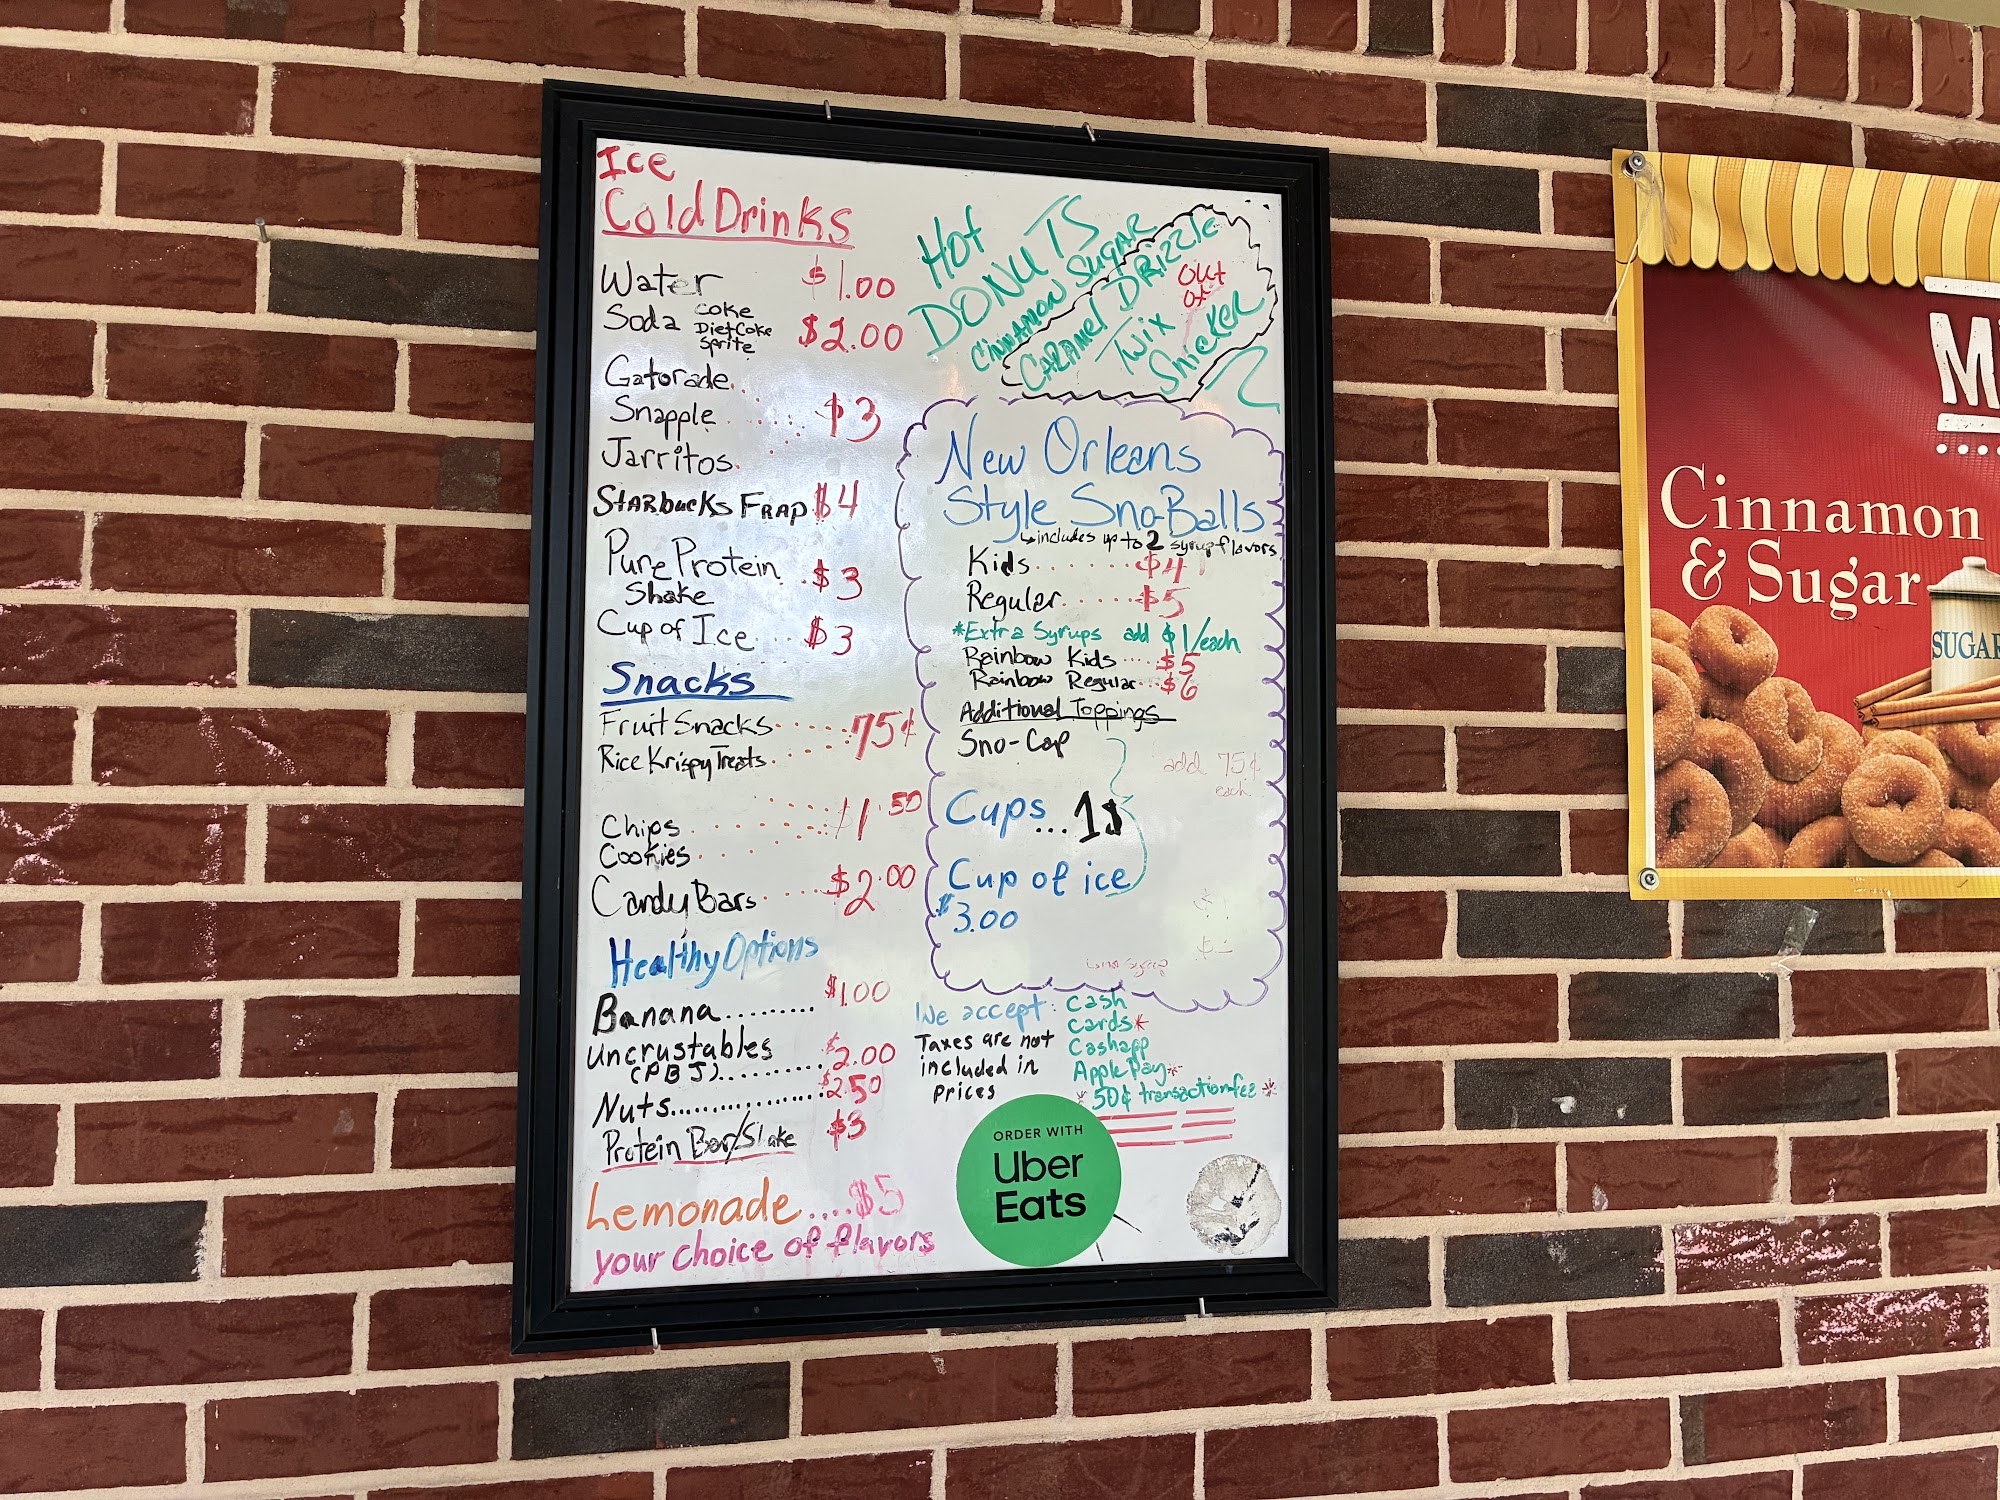 Ice
Cold Drinks
Water $1.00
Soda Coke
Diet Coke
Sprite $2.00
Gatorade
Snapple ...... $3
Jarritos
Starbucks Frap $4
Pure Protein
Shake . $3
Cup of Ice.... $3
Snacks
Fruit Snacks ..... 75¢
Rice Krispy Treats
Chips ...... $1.50
Cookies
Candy Bars .... $2.00
Healthy Options
Banana......... $1.00
Uncrustables
(PBJ).......... $2.00
Nuts............... $2.50
Protein Bar/Shake $3
Lemonade....$5
your choice of flavors
Hot
DONUTS
Cinnamon Sugar
Caramel Drizzle
Twix
Snicker
Out
of
New Orleans
Style Sno-Balls
↳includes up to 2 syrup flavors
Kids....... $4
Regular...... $5
*Extra Syrups add $1/each
Rainbow Kids .... $5
Rainbow Regular... $6
Additional Toppings
Sno-Cap
add 75¢
each
Cups...1$
Cup of ice
$3.00
We accept: Cash
Cards*
Cashapp
Apple Pay*
*50¢ transaction fee*
Taxes are not
included in
prices
ORDER WITH
Uber
Eats
M
Cinnamon
& Sugar
SUGAR